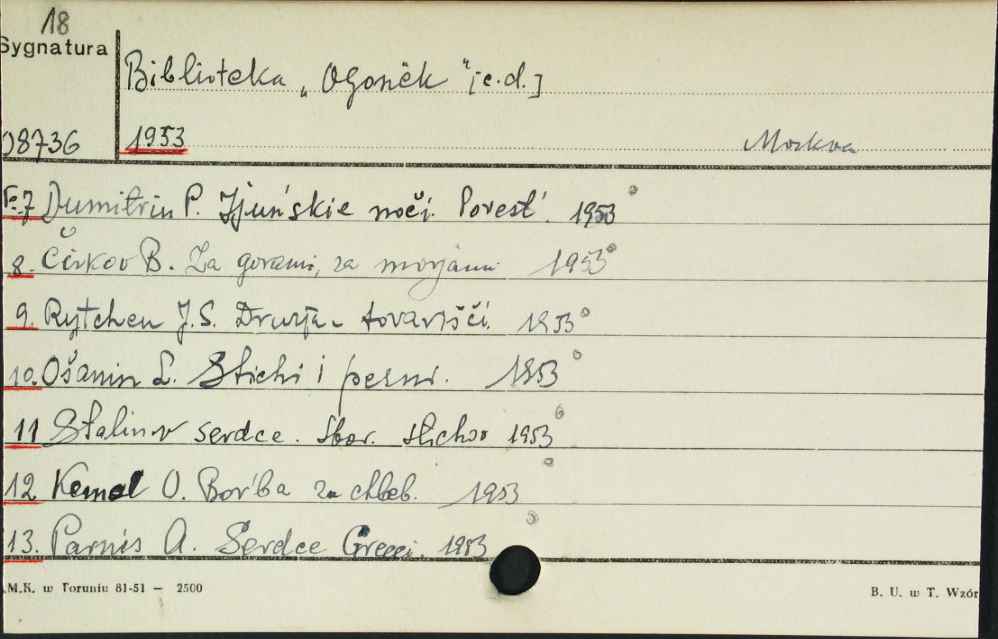 18
Sygnatura
Biblioteka „Ogonëk" [c.d.]
08736
1953 Moskva
7 Dumitriu P. Ijuńskie noči. Povest'. 1953
8. Čirkov B. Za gorami, za morjami 1953
9. Rytchèu J.S. Druz'ja - tovarišči. 1953
10. Ošanin L. Stichi i pesni. 1953
11 Stalinov serdce. Sbor. stichov 1953
12 Kemal O. Bor'ba za chleb. 1953
13. Parnis A. Serdce Grecii. 1953
.M.K. w Toruniu 81-51 — 2500
B. U. w T. Wzór